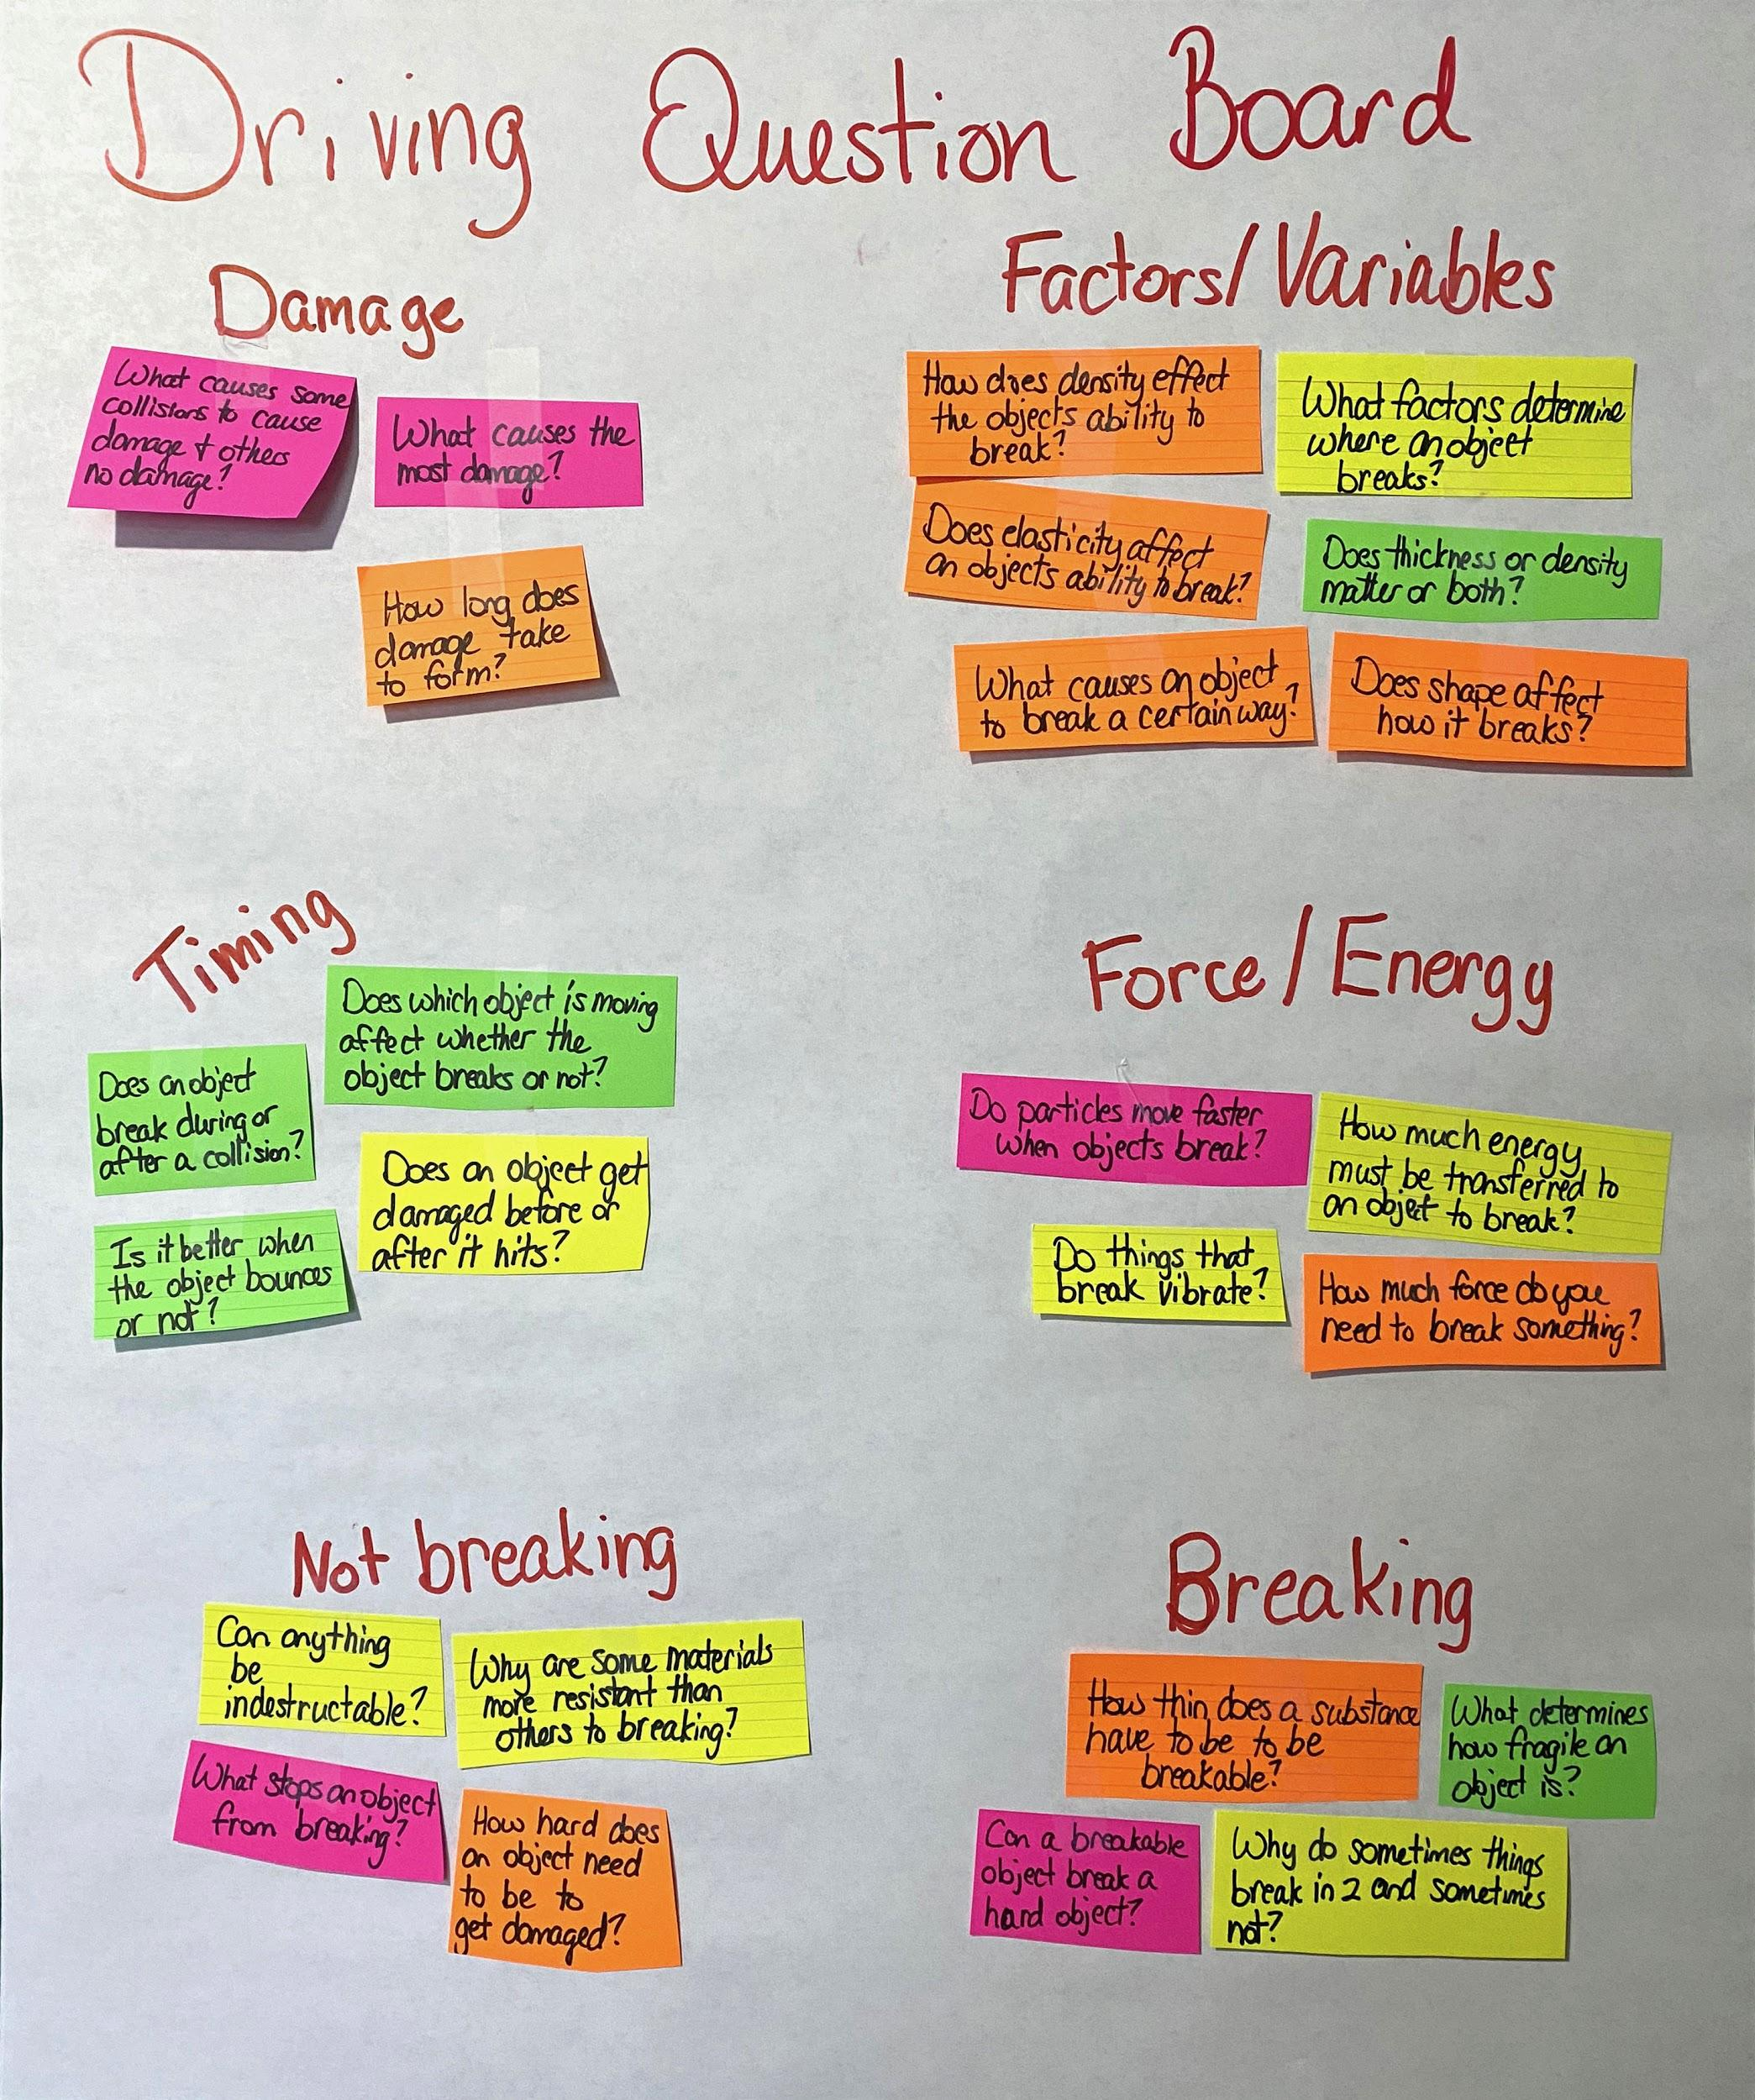 Driving Question Board
Damage
What causes some
collisions to cause
damage + others
no damage?
What causes the
most damage?
How long does
damage take
to form?
Factors/Variables
How does density effect
the objects ability to
break?
What factors determine
where an object
breaks?
Does elasticity affect
an objects ability to break?
Does thickness or density
matter or both?
What causes an object
to break a certain way?
Does shape affect
how it breaks?
Timing
Does which object is moving
affect whether the
object breaks or not?
Does an object
break during or
after a collision?
Does an object get
damaged before or
after it hits?
Is it better when
the object bounces
or not?
Force/Energy
Do particles move faster
when objects break?
How much energy
must be transferred to
an object to break?
Do things that
break vibrate?
How much force do you
need to break something?
Not breaking
Can anything
be
indestructable?
Why are some materials
more resistant than
others to breaking?
What stops an object
from breaking?
How hard does
an object need
to be to
get damaged?
Breaking
How thin does a substance
have to be to be
breakable?
What determines
how fragile an
object is?
Can a breakable
object break a
hard object?
Why do sometimes things
break in 2 and sometimes
not?